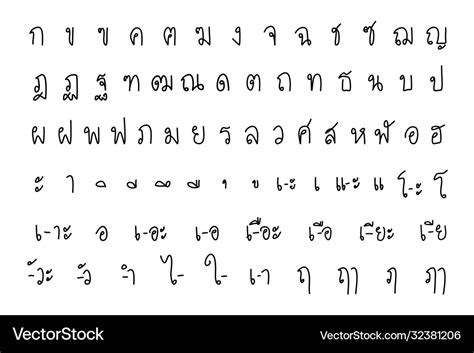 ก ข ฃ ค ฅ ฆ ง จ ฉ ช ซ ฌ ญ
ฎ ฏ ฐ ฑ ฒ ณ ด ต ถ ท ธ น บ ป
ผ ฝ พ ฟ ภ ม ย ร ล ว ศ ส ห ฬ อ ฮ
ะ า ิ ี ึ ื ุ ู เ-ะ เ แ-ะ แ โ-ะ โ
เ-าะ อ เ-อะ เ-อ เ-ือะ เ-ือ เ-ียะ เ-ีย
-ัวะ -ัว ำ ไ- ใ- เ-า ฤ ฤๅ ฦ ฦๅ
VectorStock® VectorStock.com/32381206